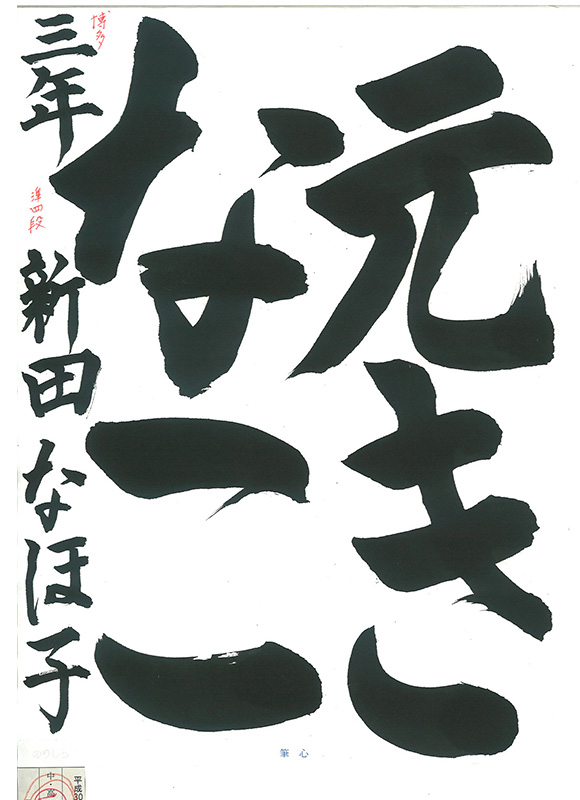 元き
なこ
博多
三年
準四段
新田なほ子
筆心
のりしろ
平成30
中・高